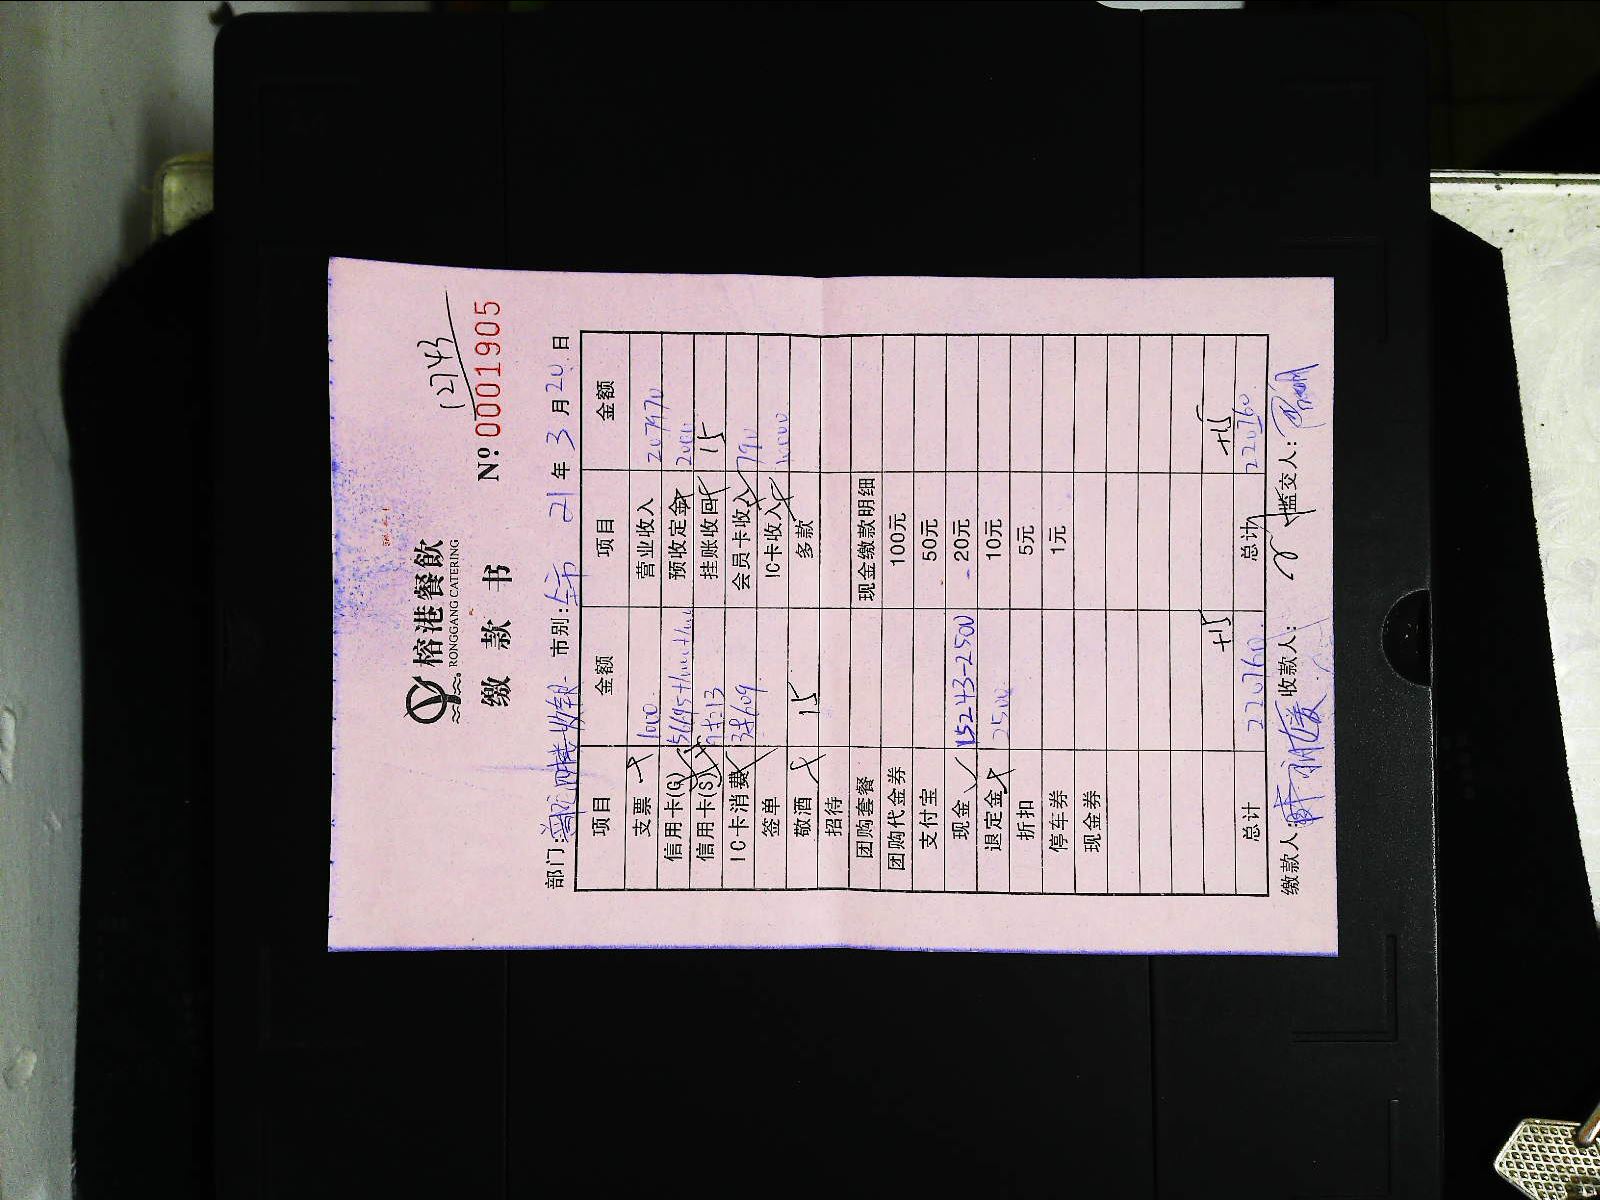 榕港餐飲
RONGGANG CATERING
缴 款 书
12743
Nº 0001905
部门: 市别:全市 21 年 3 月 20 日
项目 金额 项目 金额
支票 1000 营业收入 207970
信用卡(G) 预收定金 2000
信用卡(S) 挂账收回 15
IC卡消费 会员卡收入 790
签单 IC卡收入 10000
敬酒 15 多款
招待
团购套餐 现金缴款明细
团购代金券 100元
支付宝 50元
现金 15243-2500 20元
退定金 2500 10元
折扣 5元
停车券 1元
现金券
+15 +15
总计 220760 总计 220760
缴款人: 收款人: 监交人: